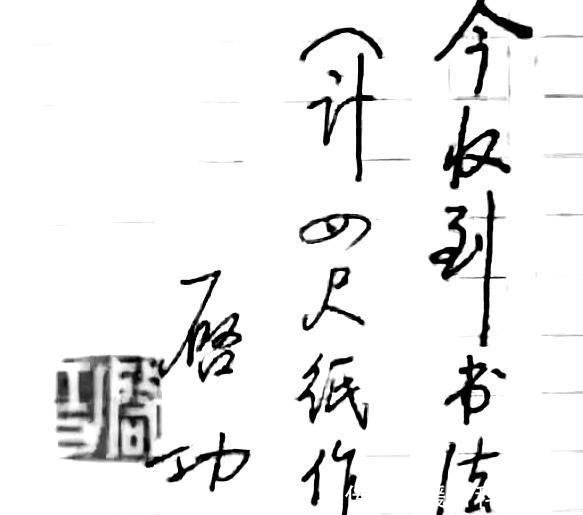 今收到书法
（计四尺纸作
启功